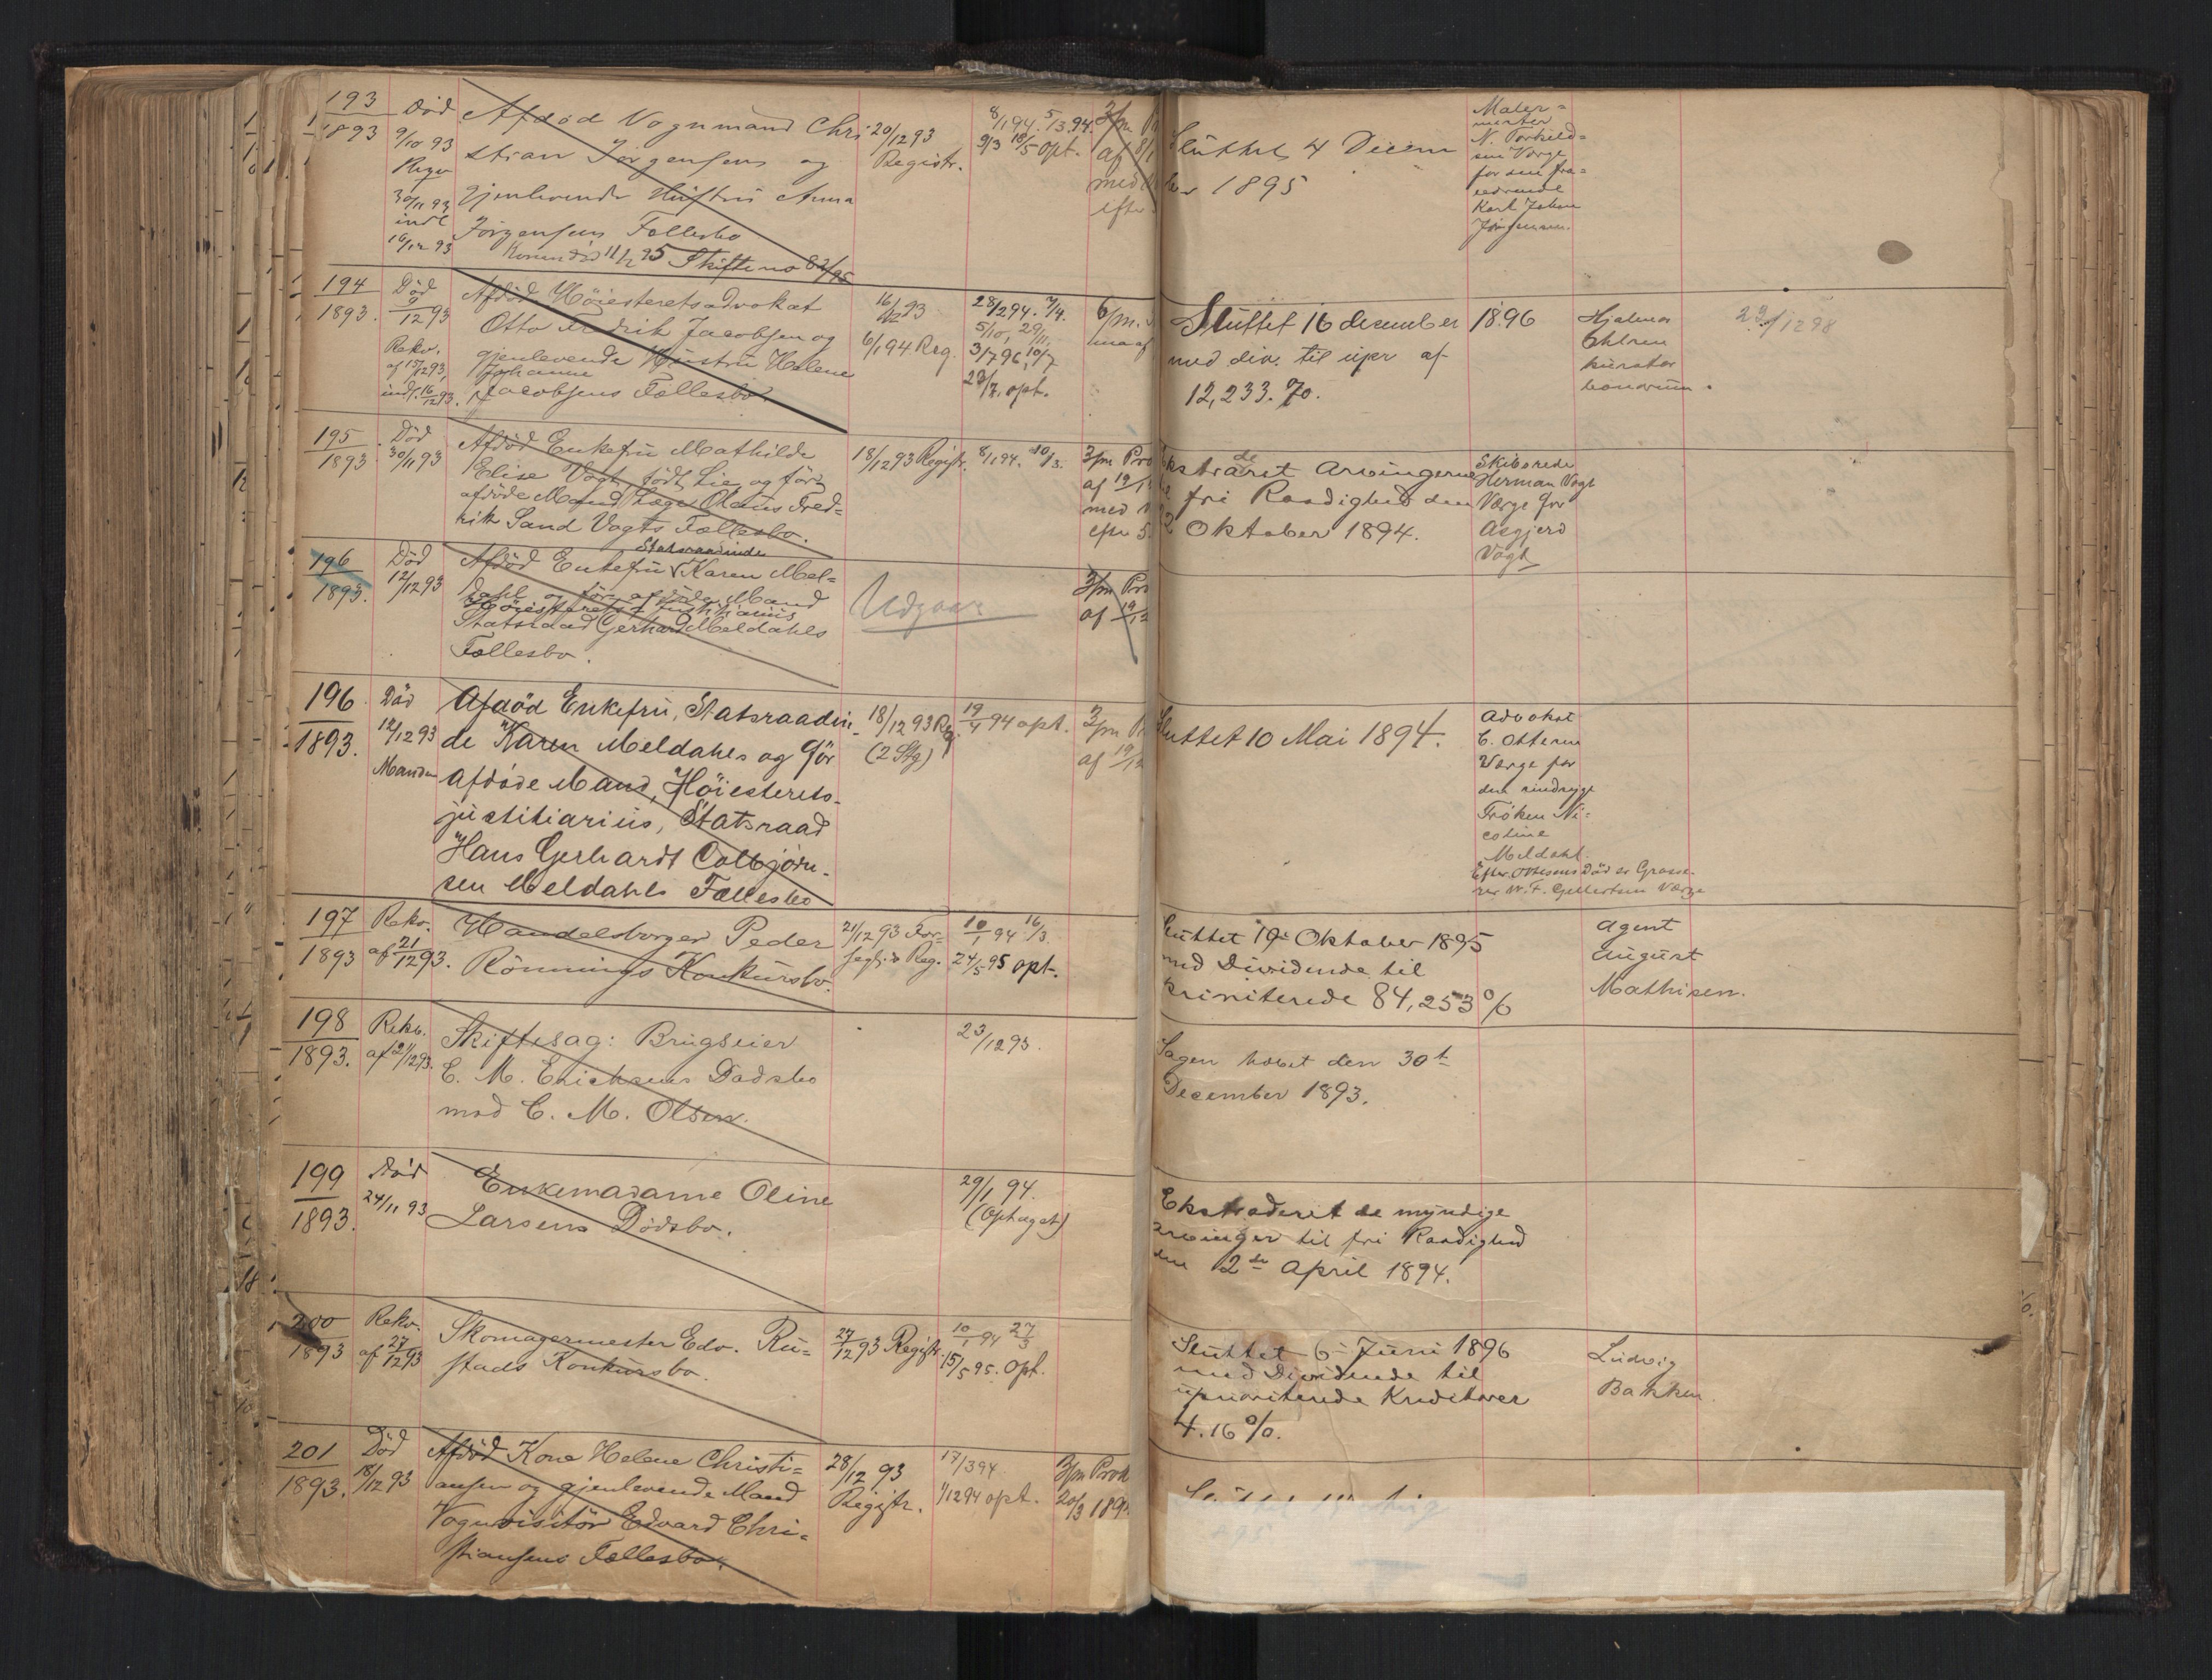 193
1893
Död
9/10 93
Regv
30/11 93
indl
16/12 93
Afdöd Vognmand Chri-
stian Jörgensens og
gjenlevende Hustru Anna
Jörgensens Fællesbo
Konen död 11/2 95 Skifte no 82/95
20/12 93
Registr.
8/1 94. 5/3 94.
9/3 18/5 opt.
3/m Pr
af 8/1
med
efter
Sluttet 4 Decem
ber 1895
Maler-
mester
N. Torkild-
sen Værge
for den fra-
værende
Karl Johan
Jörgensen.
194
1893.
Död
9/12 93
Rekv.
af 15/12 93,
indl. 16/12 93.
Afdöd Höiesteretsadvokat
Otto Fredrik Jacobsen og
gjenlevende Hustru Helene
Johanne
Jacobsens Fællesbo.
16/12 93
6/1 94 Reg.
28/2 94. 7/4.
5/10, 29/11,
3/7 96, 10/7
23/7. opt.
6/m.
Sluttet 16 december 1896
med div. til upr af
12,233.70.
Hjalmar
Ehlren
kurator
bonorum.
23/12 98
195
1893
Död
30/11 93
Afdöd Enkefru Mathilde
Elise Vogt, födt Lie, og för
afdöde Mand Læge Olaus Fred-
rik Sand Vogts Fællesbo.
18/12 93 Registr.
8/1 94. 10/3.
3/m Pro
af 19/1
med
efter 5.
Ekstraderet Arvingerne
de
til fri Raadighed den
2 Oktober 1894.
Skibsrede
Herman Vogt
Værge for
Asgjerd
Vogt
196
1893.
Död
12/12 93
Statsraadinde
Afdöd Enkefru Karen Mel-
dahl og för afdöde Mand
Höiesterets Justitiarius
Statsraad Gerhard Meldahls
Fællesbo.
Udgaar
3/m Pro
af 19/12
196
1893.
Död
12/12 93
Manden
Afdöd Enkefru, Statsraadin-
de Karen Meldahls og för
afdöde Mand, Höiesterets-
justitiarius, Statsraad
Hans Gerhardt Colbjörn-
sen Meldahls Fællesbo
18/12 93 Reg.
(2 Stg)
19/4 94 opt.
3/m Pr
af 19/12
Sluttet 10 Mai 1894.
Advokat
C. Ottesen
Værge for
den sindsyge
Fröken Ni-
coline
Meldahl.
Efter Ottesens Död er Grosse-
rer W. F. Gellertsen Værge
197
1893
Rekv.
af 21/12 93.
Handelsborger Peder
Rönnings Konkursbo.
21/12 93 For-
segl. & Reg.
10/1 94 16/3.
24/5 95 opt.
Sluttet 19 Oktober 1895
med Dividende til
upriniterede 84,253 %
Agent
August
Mathisen.
198
1893.
Rekv.
af 21/12 93.
Skiftesag: Brugseier
C. M. Erichsens Dødsbo
mod C. M. Olsen.
23/12 93.
Sagen hævet den 30t
December 1893.
199
1893.
Död
24/11 93
Enkemadame Oline
Larsens Dödsbo.
29/1 94.
(Optaget)
Ekstraderet de myndige
Arvinger til fri Raadighed
den 2de April 1894.
200
1893
Rekv.
af 27/12 93
Skomagermester Edv. Ru-
stads Konkursbo.
27/12 93 Registr.
10/1 94 27/3
15/5 95. opt.
Sluttet 6 Juni 1896
med Dividende til
upriviterede Kreditorer
4.16 %.
Ludvig
Bakken
201
1893.
Död
18/12 93
Afdöd Kone Helene Christi-
ansen og gjenlevende Mand
Vognvisitör Edvard Chri-
stiansens Fællesbo.
28/12 93
Registr.
17/3 94
1/12 94 opt.
3/m Prok
20/3 189